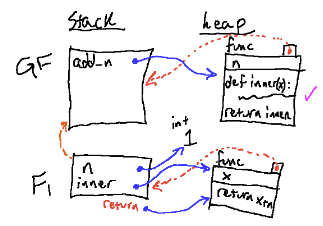 Stack
heap
func
GF
add_n
n
def inner(x):
return inner
int
1
func
F1
n
inner
x
return
return x+n